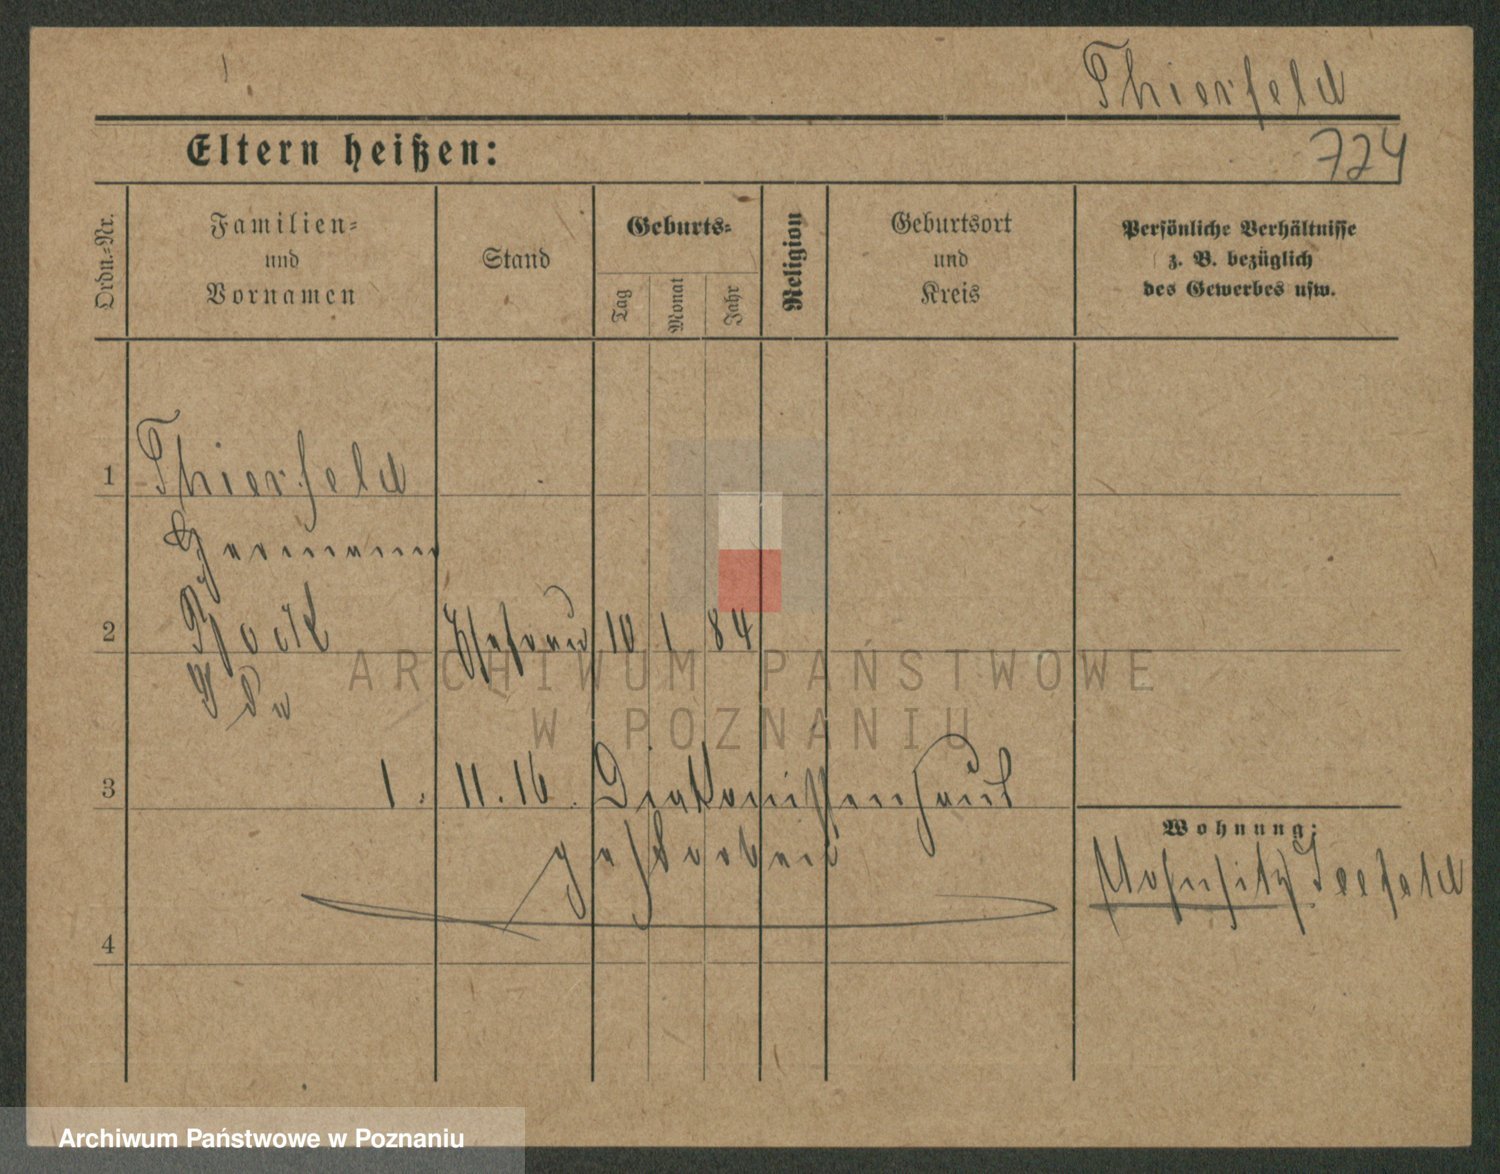 Thierfeld
Eltern heißen:
724
Ordn.-Nr.
Familien-
und
Vornamen
Stand
Geburts-
Tag
Monat
Jahr
Religion
Geburtsort
und
Kreis
Persönliche Verhältnisse
z. B. bezüglich
des Gewerbes usw.
1 Thierfeld
Hermann
2 Bock Ehefrau 10 1 84
Ida
ARCHIWUM PAŃSTWOWE
W POZNANIU
3 1. 11. 16. Diakonissenhaus
gestorben
Wohnung:
Wohnsitz Seefeld
4
Archiwum Państwowe w Poznaniu